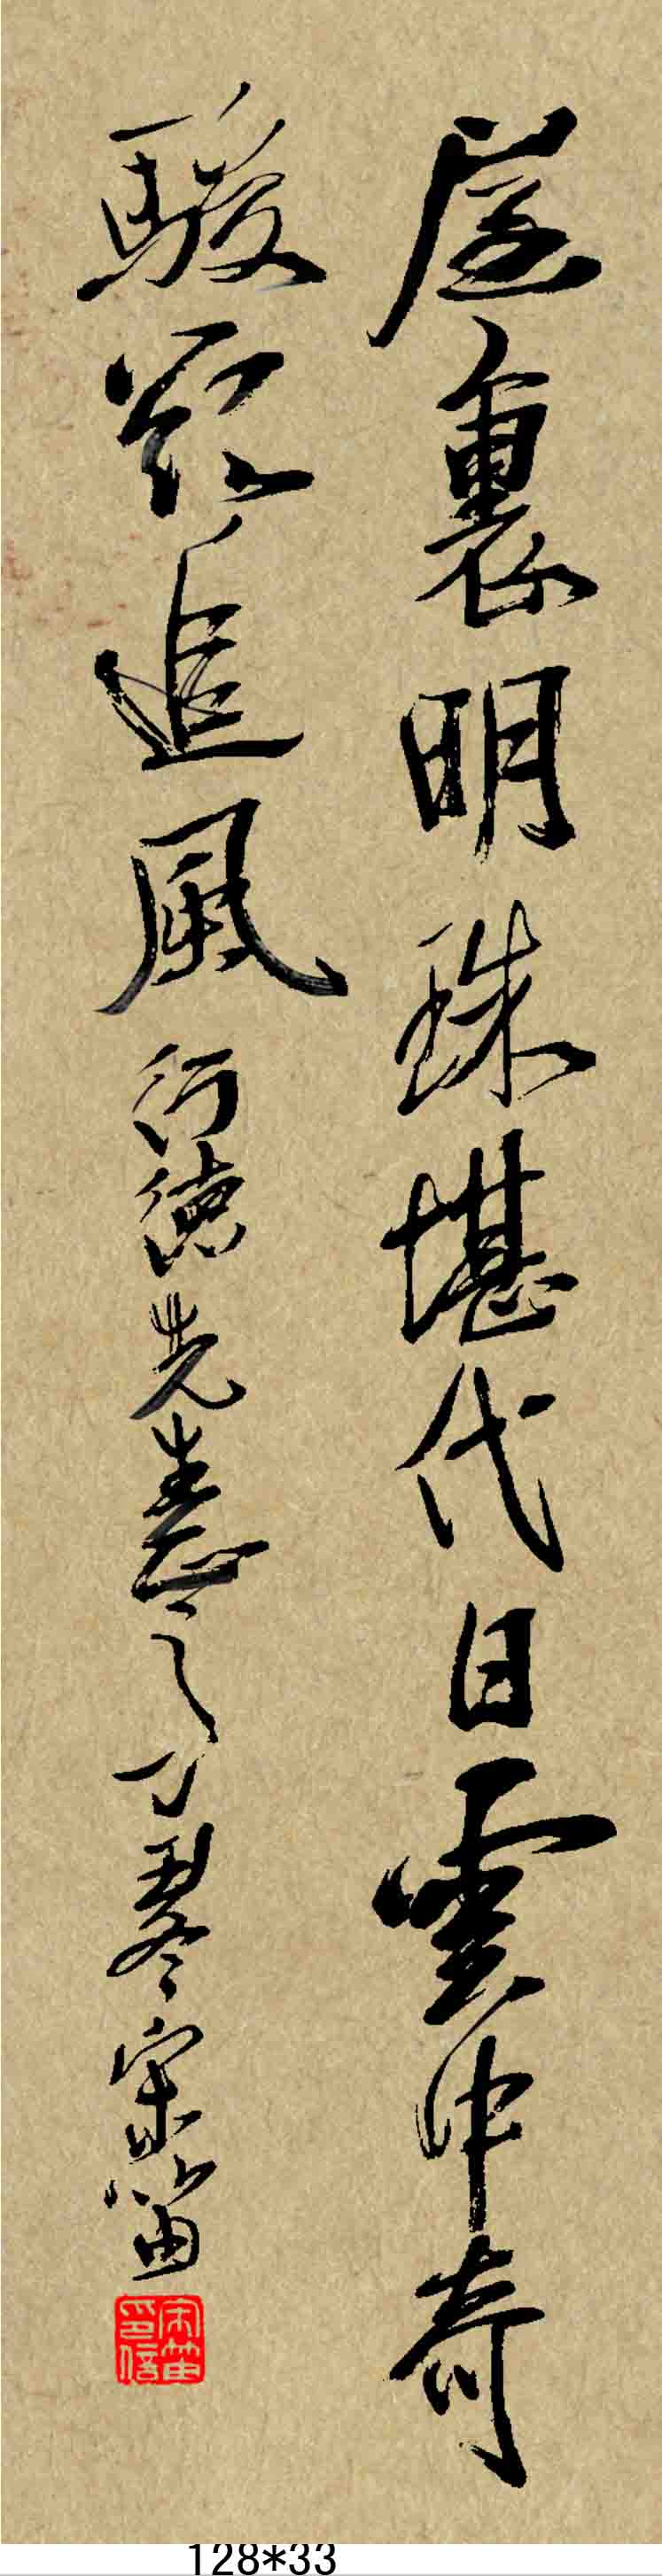 屋裏明珠堪代日雲中奇
駿欲追風行德先生嘱之丁丑冬宋笛
宋笛印信
128*33